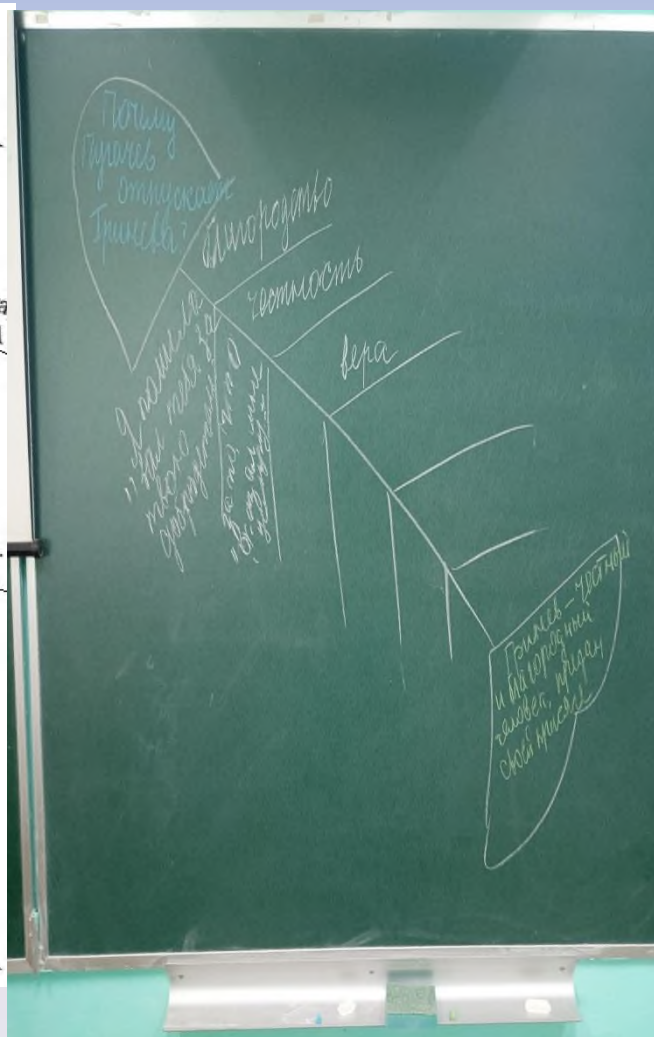 Почему
Пугачев
отпускает
Гринева?
благородство
честность
вера
"Я помило
вал тебя за
твою
добродетель
"за то что
ты оказал мне
услугу"
Гринев – честный
и благородный
человек, предан
своей присяге